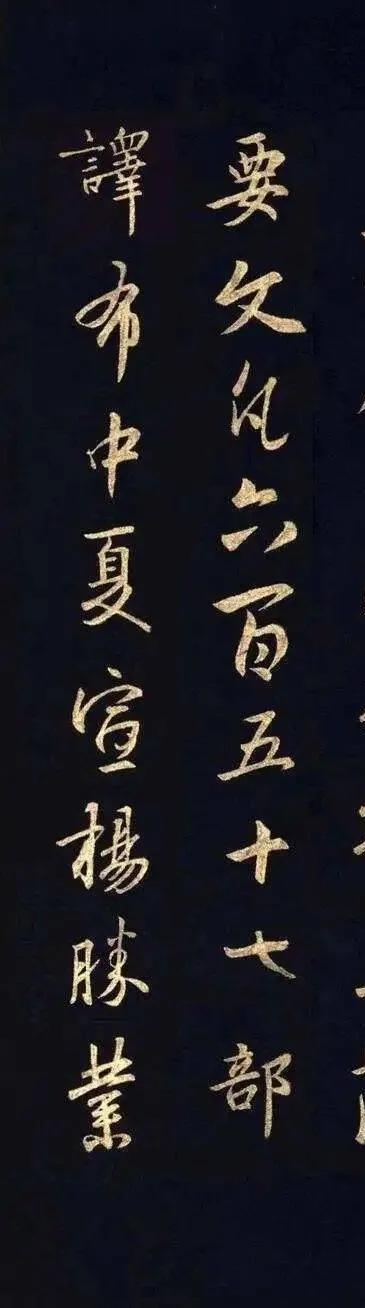 要文凡六百五十七部
譯布中夏宣楊勝業